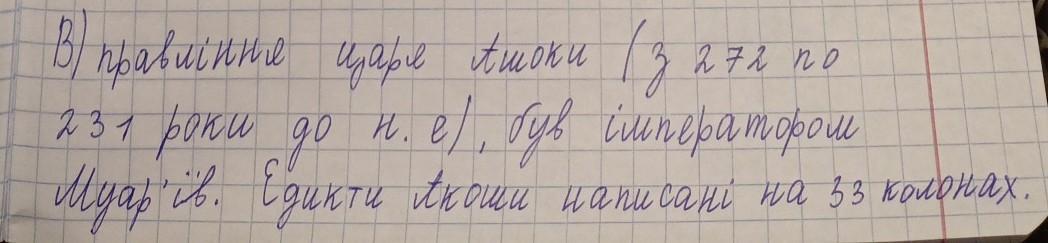 В) правління царя Ашоки (з 272 по
231 роки до н. е), був імператором
Муар'їв. Едикти Акоши написані на 33 колонах.